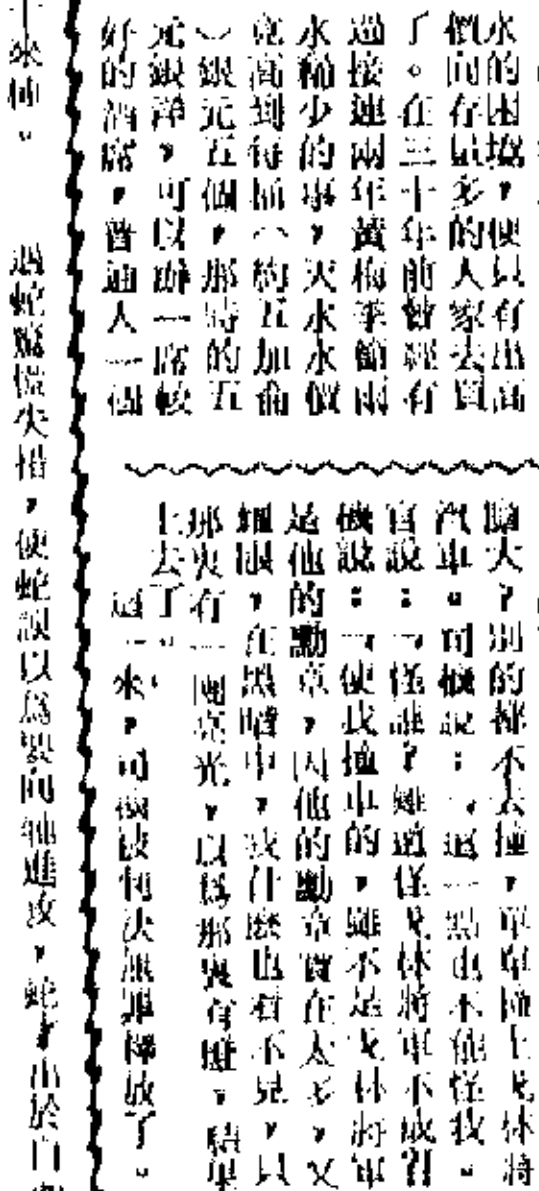 水的困擾，便只有出高
價向存量多的人家去買
了。在三十年前曾經有
過接連兩年黃梅季節雨
水稀少的事，天水水價
竟高到每桶（約五加侖
）銀元五個，那時的五
元銀洋，可以辦一席較
好的酒席，普通人一個
膽大？別的都不去撞，單單撞上戈林將
汽車。司機說：「這一點也不能怪我。
官說：「怪誰？難道怪戈林將軍不成？」
機說：「使我撞車的，雖不是戈林將軍
是他的勳章，因他的勳章實在太多，又
耀眼，在黑暗中，我什麼也看不見，只
那裏有一團亮光，以爲那裏有燈，結果
上去了。」
這一來，司機被判決無罪釋放了。
來柿。
遇蛇驚慌失措，便蛇誤以爲要向牠進攻，蛇才出於自